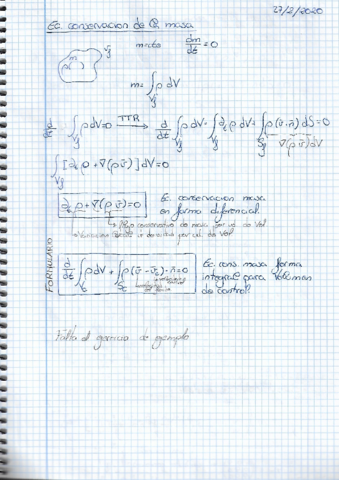 27/2/2020
Ec. conservacion de la masa
m=cte dm/dt = 0
m
ρ Vf
m = ∫Vf ρ dV
d/dt ∫Vf ρ dV = 0 TTR → d/dt ∫Vf ρ dV = ∫Vf ∂t ρ dV + ∫Sf ρ(v̄·n̄) dS = 0
∇(ρ v̄) dV
∫Vf [∂t ρ + ∇(ρ v̄)] dV = 0
∂t ρ + ∇(ρ v̄) = 0 Ec. conservacion masa
en forma diferencial.
→ Flujo convectivo de masa por ud. de Vol
FORMULARIO
d/dt ∫Vc ρ dV + ∫Sc ρ(v̄ - v̄c)·n̄ = 0 Ec. cons. masa forma
integral para volumen
de control.
Falta el gerencia de ejemplo